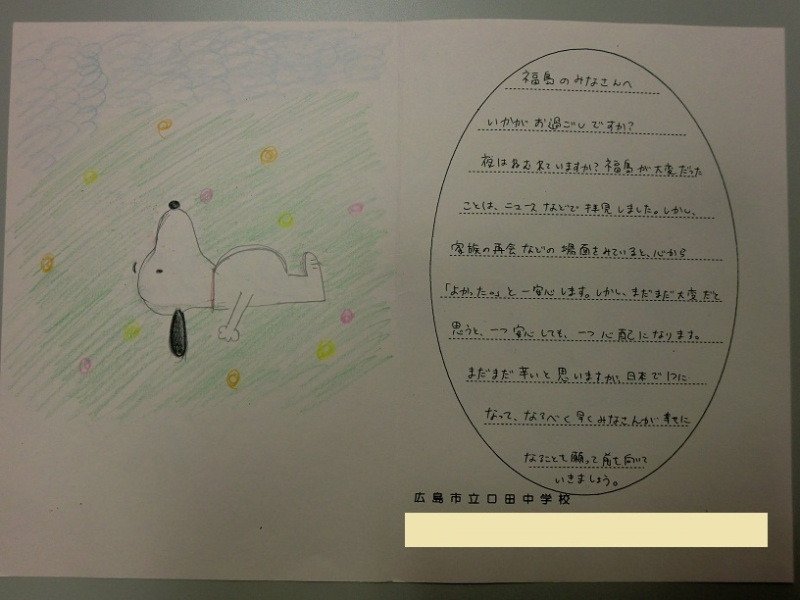 福島のみなさんへ
いかがお過ごしですか?
夜はねむれていますか?福島が大変だった
ことは、ニュースなどで拝見しました。しかし、
家族の再会などの場面をみていると、心から
「よかった。」と一安心します。しかし、まだまだ大変だと
思うと、一つ安心しても、一つ心配になります。
まだまだ辛いと思いますが、日本で1つに
なって、なるべく早くみなさんが幸せに
なることを願って前を向いて
いきましょう。
広島市立口田中学校